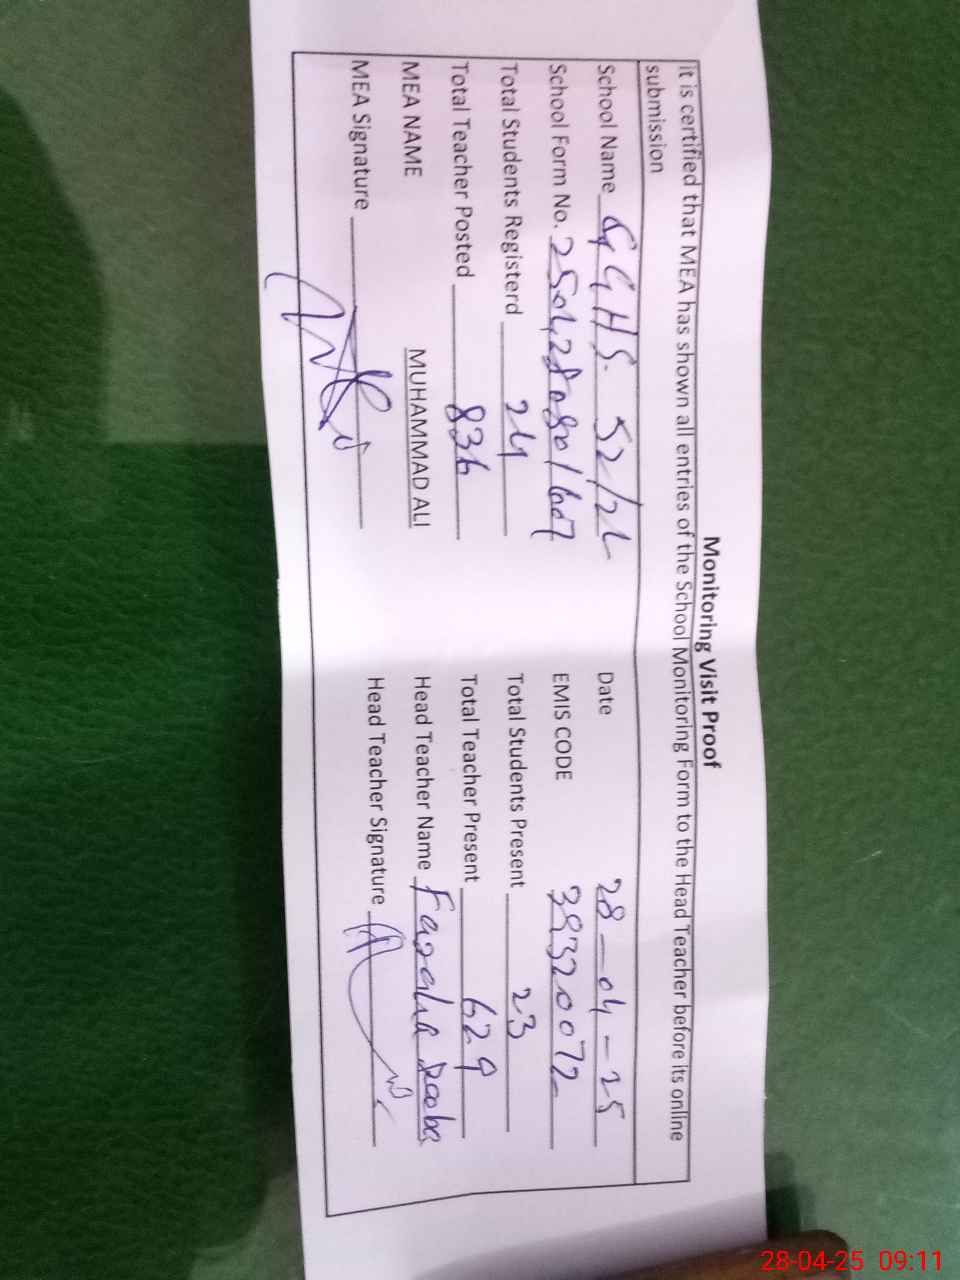 Monitoring Visit Proof
it is certified that MEA has shown all entries of the School Monitoring Form to the Head Teacher before its online
submission
School Name GGHS. 52/2L Date 28-04-25
School Form No. EMIS CODE 39320072
Total Students Registerd 24 Total Students Present 23
Total Teacher Posted 836 Total Teacher Present 629
MEA NAME MUHAMMAD ALI Head Teacher Name
MEA Signature Head Teacher Signature
28-04-25 09:11